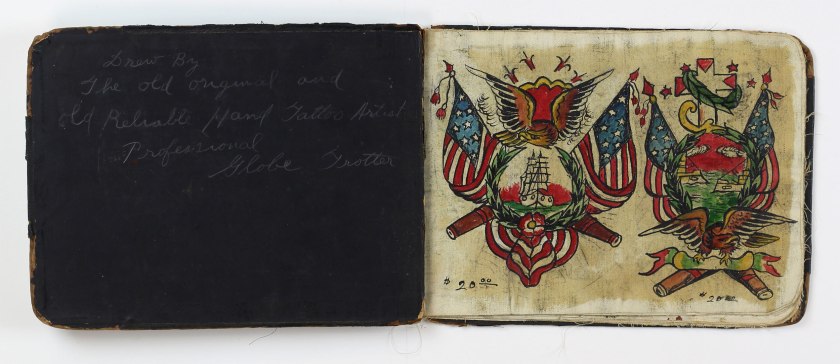 Drew By
The old original and
old Reliable Hand Tattoo Artist
Professional
Globe Trotter
$ 20 00
$ 20 00